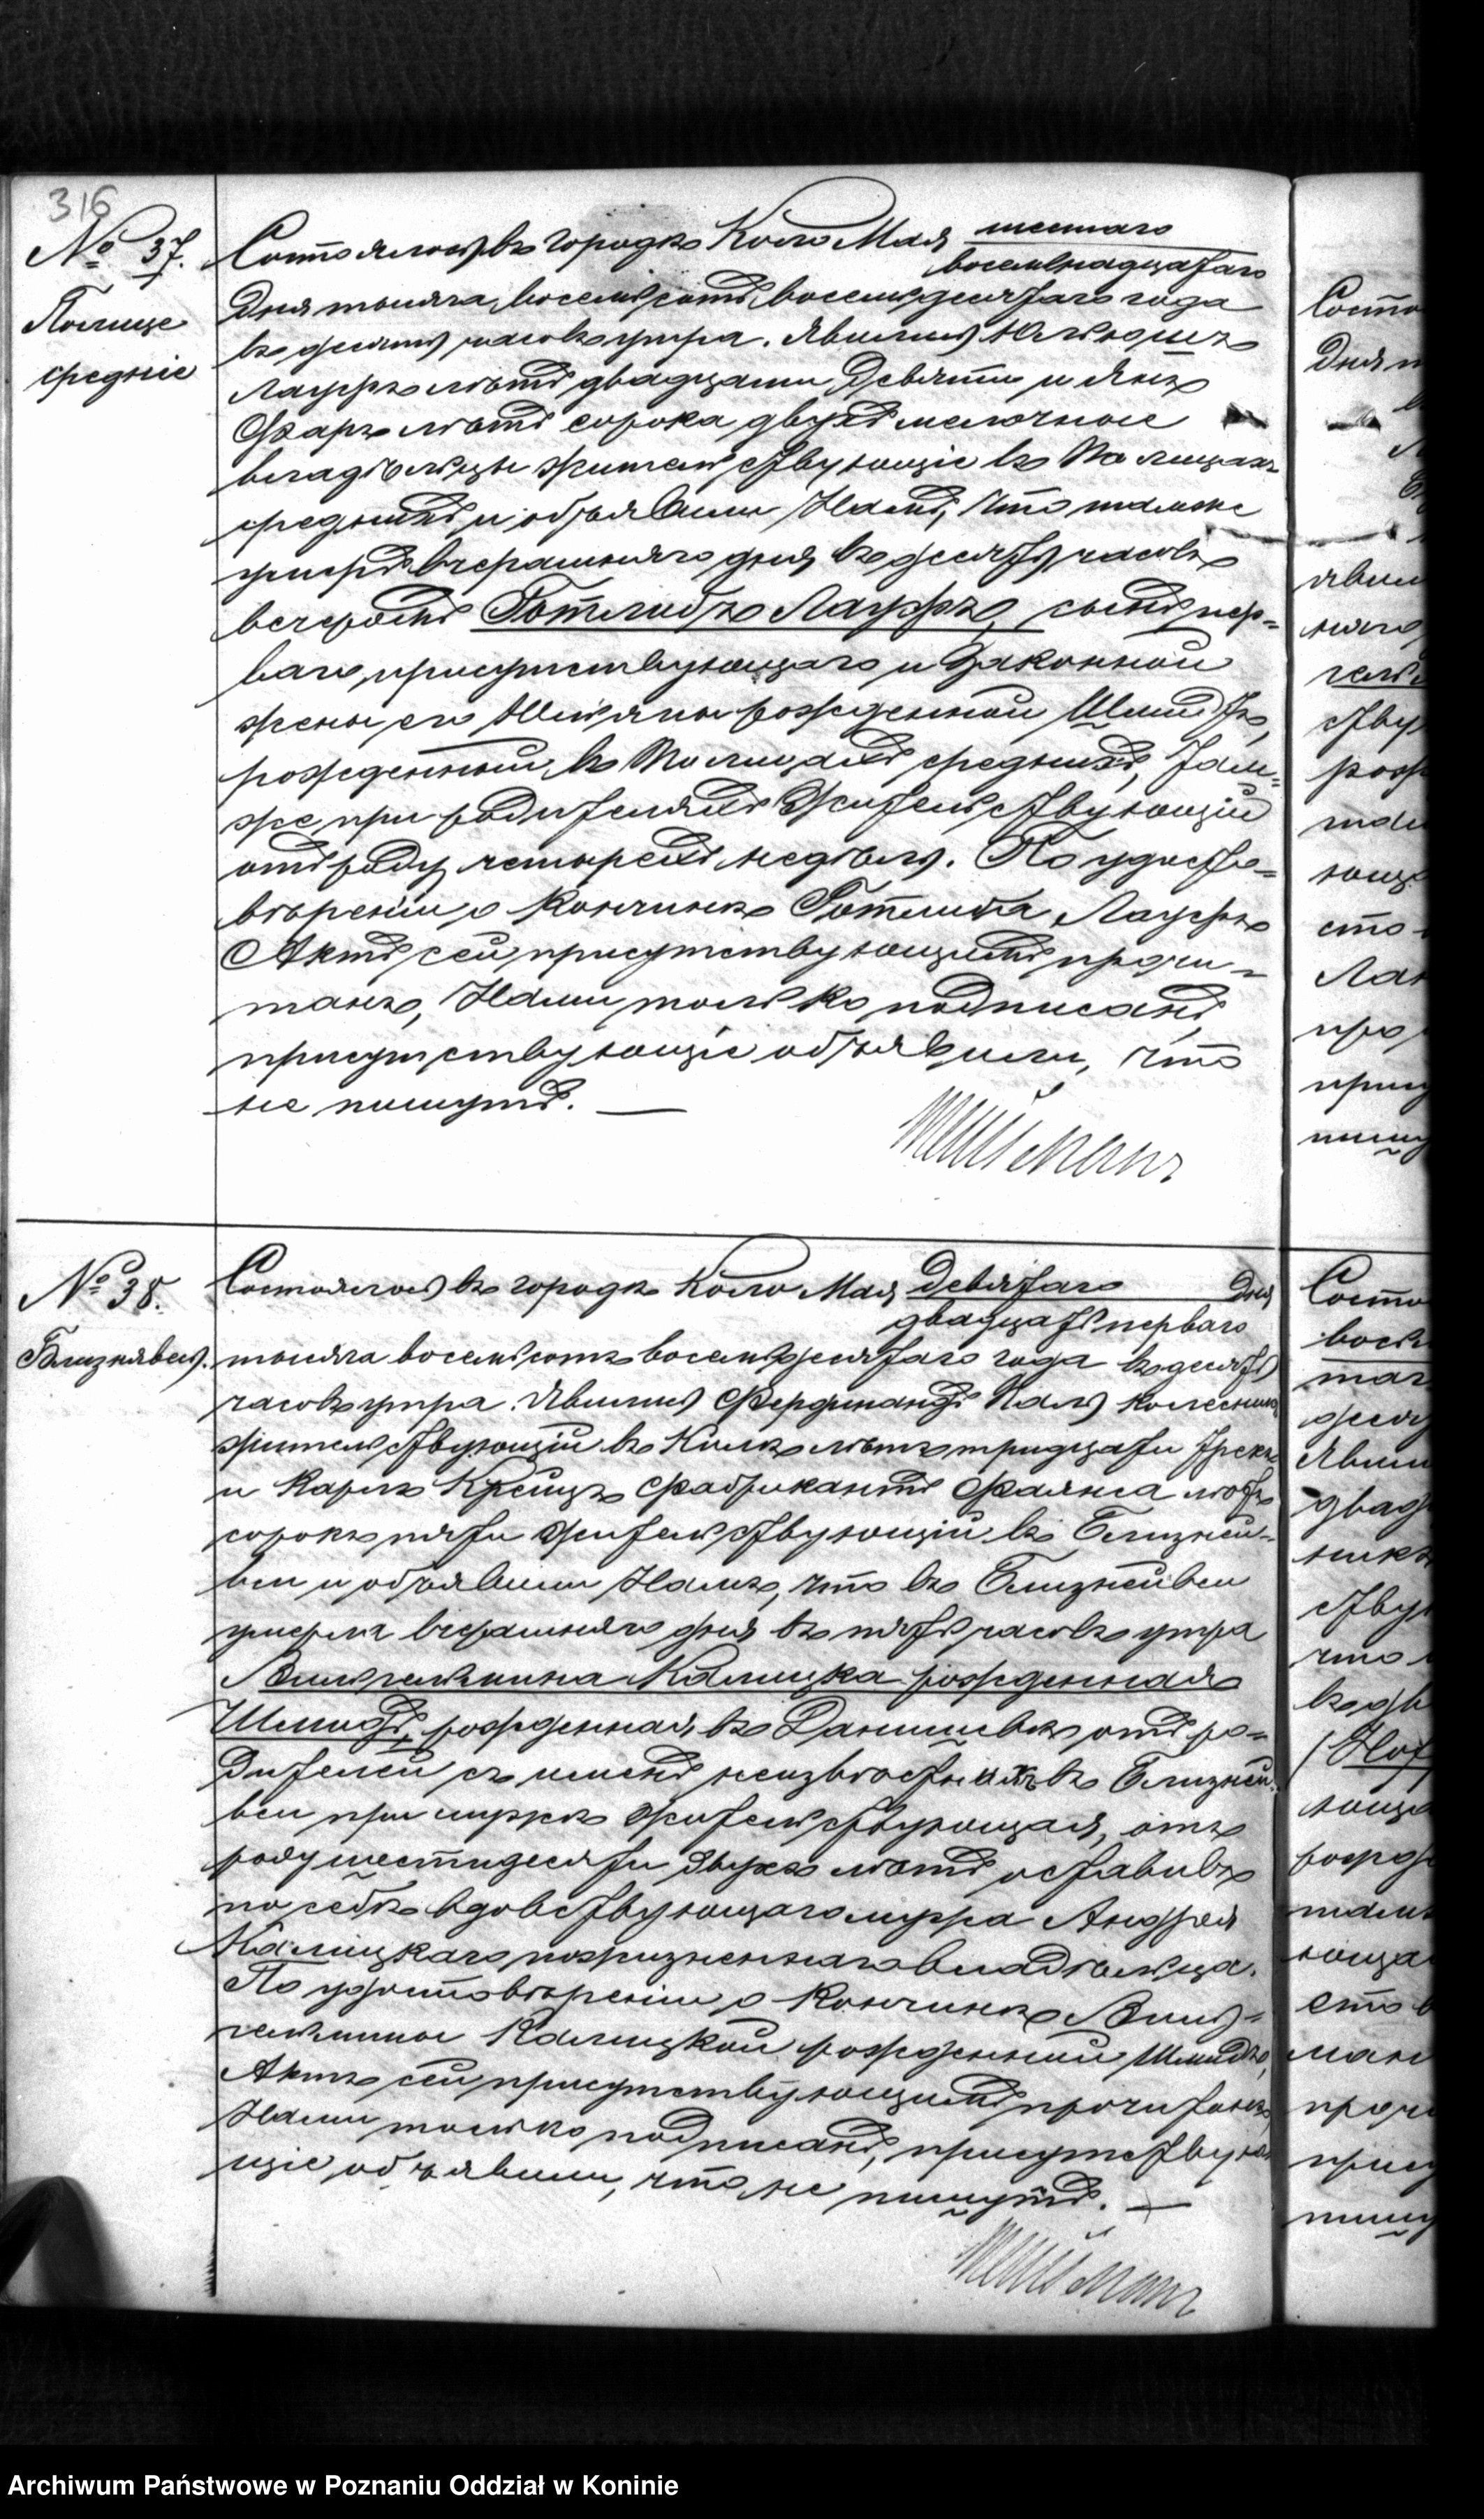 316
№ 37.
Полице
средніе
Состоялось въ городѣ Коло Мая шестаго
восемнадцатаго
Дня тысяча восемьсотъ восемьдесятаго года
въ десять часовъ утра. Явились Юліюшъ
Лауфръ лѣтъ двадцати девяти и Янъ
лѣтъ сорока двухъ мелочные
владѣльцы жительствующіе въ Полицахъ
среднихъ и объявили Намъ, что тамже
умеръ вчерашняго дня въ десять часовъ
вечеромъ Готлибъ Лауфръ, сынъ пер=
ваго присутствующаго и Законной
жены его рожденной Шмидтъ,
рожденный въ Полицахъ среднихъ, там=
же при родителяхъ Жительствующій
отъ роду четырехъ недѣль. По удосто=
вѣреніи о Кончинѣ Готлиба Лауфръ
Актъ сей присутствующимъ прочи=
танъ, Нами только подписанъ,
присутствующіе объявили, что
не пишутъ. —
№ 38.
Близнявесь.
Состоялось въ городѣ Коло Мая Девятаго Дня
двадцать перваго
тысяча восемьсотъ восемьдесятаго года въ десять
часовъ утра. Явились Фердинандъ Паль колесникъ
жительствующій въ Колѣ лѣтъ тридцати трехъ
и Карлъ Крейцъ фабрикантъ Фаянса лѣтъ
сорокъ пяти Жительствующій въ Близней=
вси и объявили Намъ, что въ Близнейвси
умерла вчерашняго дня въ пять часовъ утра
Вильгельмина Калицка рожденная
Шмидтъ, рожденная въ отъ ро=
дителей съ именъ неизвѣстныхъ въ Близней=
вси при мужѣ Жительствующая, отъ
роду шестидесяти двухъ лѣтъ оставивъ
по себѣ вдовствующаго мужа Андрея
Калицкаго пожизненнаго владѣльца.
По удостовѣреніи о Кончинѣ Виль=
гельмины Калицкой рожденный Шмидтъ,
Актъ сей присутствующимъ прочитанъ,
Нами только подписанъ, присутствую
щіе объявили, что не пишутъ. —
Archiwum Państwowe w Poznaniu Oddział w Koninie